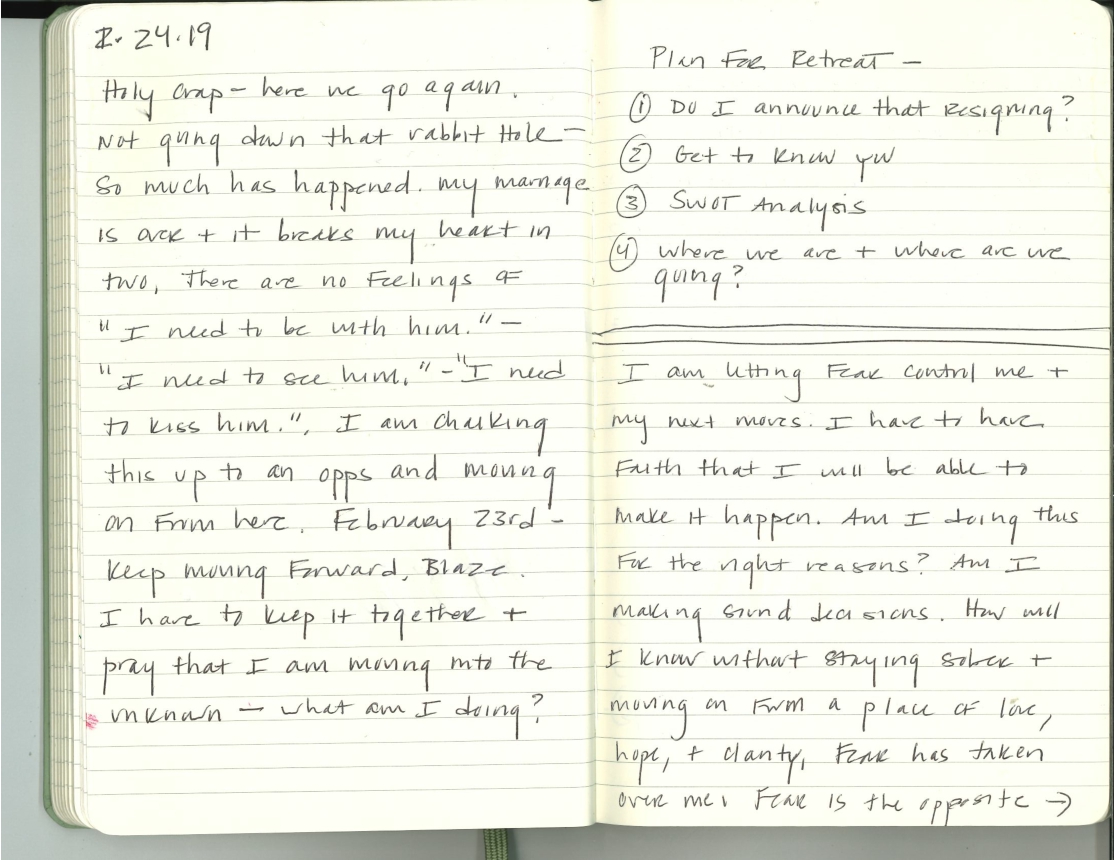 2. 24.19
Holy crap - here we go again.
Not going down that rabbit Hole -
So much has happened. my marriage
is over + it breaks my heart in
two, There are no Feelings of
"I need to be with him." -
"I need to see him." - "I need
to kiss him.". I am chalking
this up to an opps and moving
on From here. February 23rd -
Keep moving Forward, Blaze.
I have to keep it together +
pray that I am moving into the
unknown - what am I doing?
Plan For Retreat -
① Do I announce that resigning?
② Get to know you
③ SWOT Analysis
④ where we are + where are we
going?
I am letting Fear control me +
my next moves. I have to have
Faith that I will be able to
make it happen. Am I doing this
For the right reasons? Am I
making sound decisions. How will
I know without staying sober +
moving on From a place of love,
hope, + clarity, Fear has taken
over me. Fear is the opposite →